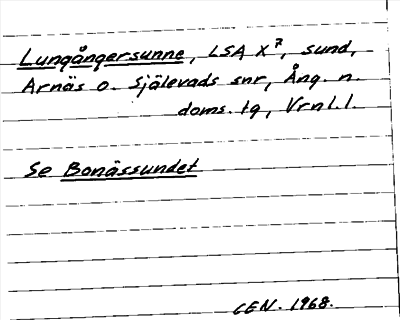 Lungångersunne, LSA X⁷, sund,
Arnäs o. Själevads snr, Ång. n.
doms. tg, Vrnl. l.
Se Bonässundet
CEN. 1968.